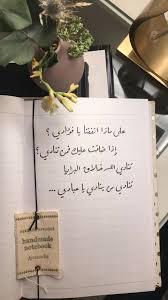 على ماذا اتفقنا يا فؤادي ؟
إذا ضاقت عليك فمن تنادي ؟
تنادي الله خلاق البرايا
تنادي من ينادي يا عبادي ...
handmade
notebook